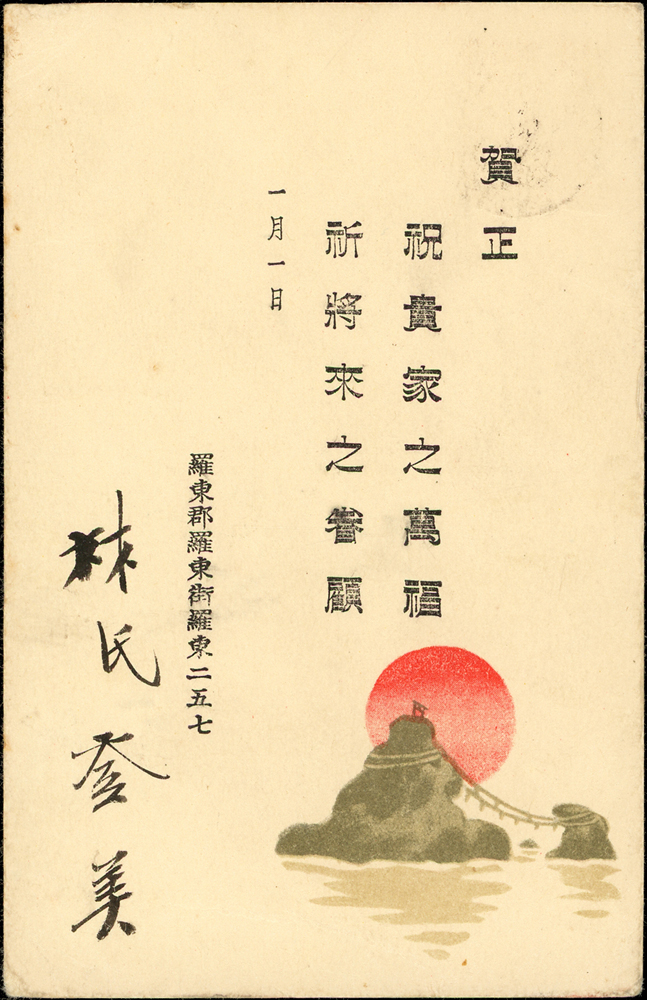 賀正
祝貴家之萬福
祈將來之眷顧
一月一日
羅東郡羅東街羅東二五七
林氏奎美